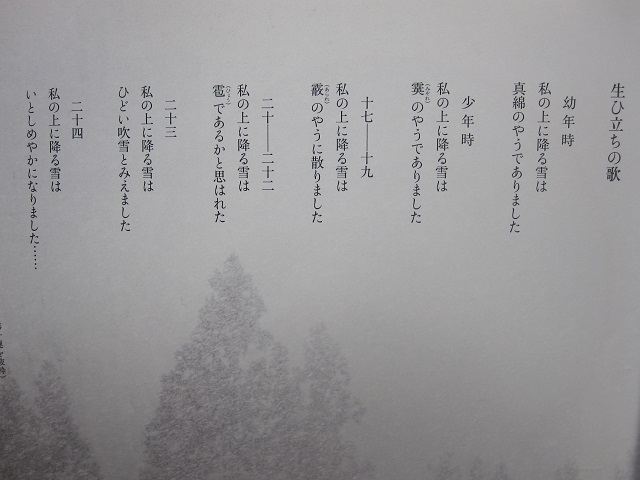 生ひ立ちの歌
幼年時
私の上に降る雪は
真綿のやうでありました
少年時
私の上に降る雪は
霙(みぞれ)のやうでありました
十七――十九
私の上に降る雪は
霰(あられ)のやうに散りました
二十――二十二
私の上に降る雪は
雹(ひょう)であるかと思はれた
二十三
私の上に降る雪は
ひどい吹雪とみえました
二十四
私の上に降る雪は
いとしめやかになりました……